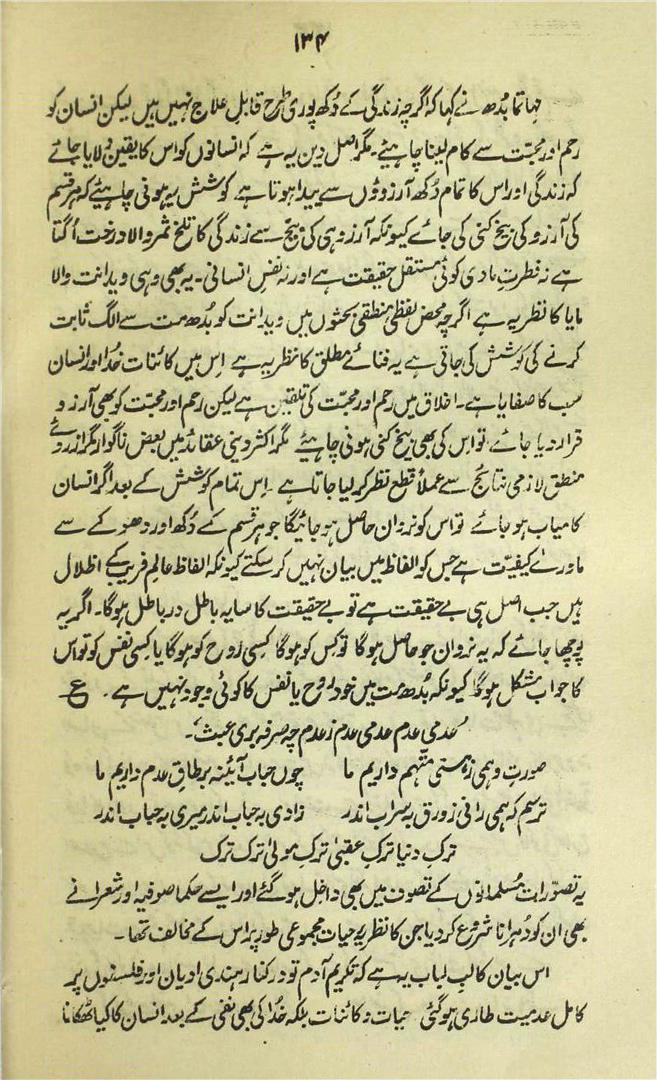 ۱۳۴
مہاتما بُدھ نے کہا کہ اگرچہ زندگی کے دُکھ پوری طرح قابلِ علاج نہیں ہیں لیکن انسان کو
رحم اور محبّت سے کام لینا چاہیئے۔ مگر اصل دین یہ ہے کہ انسانوں کو اس کا یقین دلایا جائے
کہ زندگی اور اس کا تمام دُکھ آرزوؤں سے پیدا ہوتا ہے کوشش یہ ہونی چاہیئے کہ ہر قسم
کی آرزو کی بیخ کنی کی جائے کیونکہ آرزو ہی کی بیخ سے زندگی کا تلخ ثمر والا درخت اُگتا
ہے نہ فطرتِ مادی کوئی مستقل حقیقت ہے اور نہ نفسِ انسانی۔ یہ بھی وہی ویدانت والا
مایا کا نظریہ ہے اگرچہ محض لفظی منطقی بحثوں میں ویدانت کو بُدھ مت سے الگ ثابت
کرنے کی کوشش کی جاتی ہے یہ فنائے مطلق کا نظریہ ہے اِس میں کائنات خُدا اور انسان
سب کا صفایا ہے۔ اخلاق میں رحم اور محبّت کی تلقین ہے لیکن رحم اور محبّت کو بھی آرزو
قرار دیا جائے، تو اس کی بھی بیخ کنی ہونی چاہیئے مگر اکثر دینی عقائد میں بعض ناگوار مگر از روئے
منطق لازمی نتائج سے عملاً قطع نظر کر لیا جاتا ہے۔ اِس تمام کوشش کے بعد اگر انسان
کامیاب ہو جائے تو اس کو نروان حاصل ہو جائیگا جو ہر قسم کے دُکھ اور دھوکے سے
ماورائے کیفیّت ہے جس کو الفاظ میں بیان نہیں کر سکتے کیونکہ الفاظ عالمِ فریب کے اظلال
ہیں جب اصل ہی بے حقیقت ہے تو بے حقیقت کا سایہ باطل در باطل ہوگا۔ اگر یہ
پوچھا جائے کہ یہ نروان جو حاصل ہوگا تو کس کو ہوگا کسِی رُوح کو ہوگا یا کِسی نفس کو تو اس
کا جواب مشکل ہوگا کیونکہ بُدھ مت میں خود رُوح یا نفس کا کوئی وجود نہیں ہے۔ ع
عدمی عدم عدمی عدم ز عدم چہ صرفہ بری عبث؂۔
صورتِ وہمی ز ہستی متہم داریم ما چوں حباب آئینہ بر طاقِ عدم داریم ما
ترسم کہ ہمی رانی زورق بسراب اندر زادی بہ حباب اندر میری بہ حباب اندر
ترکِ دنیا ترکِ عقبیٰ ترکِ مولیٰ ترک ترک
یہ تصوّرات مُسلمانوں کے تصوف میں بھی داخل ہو گئے اور ایسے حکما صوفیہ اور شعرا نے
بھی ان کو دُہرانا شروع کر دیا جن کا نظریہ حیات مجموعی طور پر اس کے مخالف تھا۔
اس بیان کا لبِ لباب یہ ہے کہ تکریمِ آدم تو درکنار ہندی ادیان اور فلسفوں پر
کامل عدمیت طاری ہوگئی حیات و کائنات بلکہ خُدا کی بھی نفی کے بعد انسان کا کیا ٹھکانا